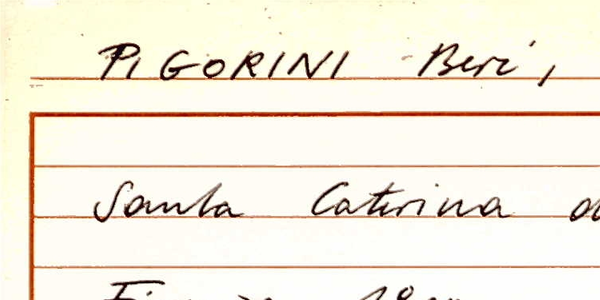 PIGORINI Beri,
Santa Caterina d